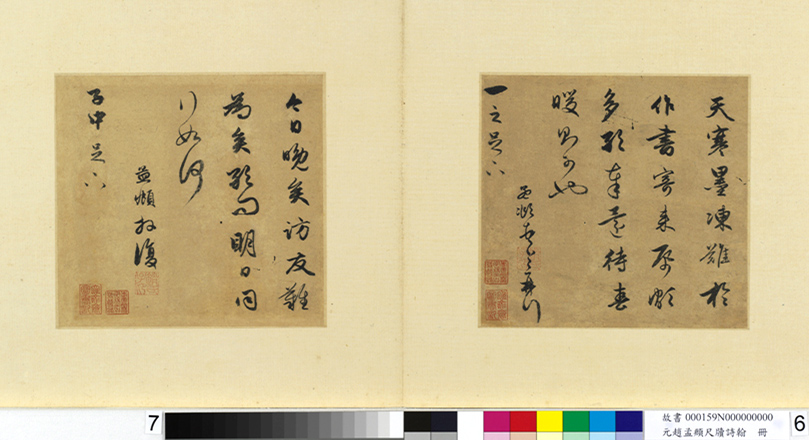 天寒墨凍難於
作書寄來
多奉還待春
暖即可也
孟頫
一之足下
今日晚矣訪友難
為矣明日同
行如何
孟頫拜復
子中足下
7
故書 000159N000000000
元趙孟頫尺牘詩翰 冊
6